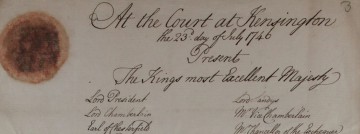 3
At the Court at Kensington
the 23.d day of July 1746
Present
The Kings most Excellent Majesty
Lord President
Lord Sandys
Lord Chamberlain
Mr. Vice Chamberlain
Earl of Chesterfield
Mr. Chancellor of the Exchequer